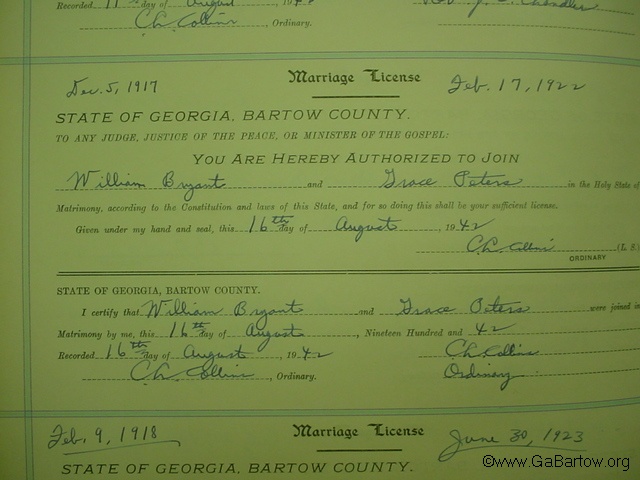 Recorded 11th day of August, 19
C.L. Collins Ordinary.
Dec. 5, 1917 Marriage License Feb. 17, 1922
STATE OF GEORGIA, BARTOW COUNTY.
TO ANY JUDGE, JUSTICE OF THE PEACE, OR MINISTER OF THE GOSPEL:
YOU ARE HEREBY AUTHORIZED TO JOIN
William Bryant and Grace Peters in the Holy State of
Matrimony, according to the Constitution and laws of this State, and for so doing this shall be your sufficient license.
Given under my hand and seal, this 16th day of August, 1942
C.L. Collins (L. S.)
ORDINARY
STATE OF GEORGIA, BARTOW COUNTY.
I certify that William Bryant and Grace Peters were joined in
Matrimony by me, this 16th day of August, Nineteen Hundred and 42
Recorded 16th day of August, 1942 C.L. Collins
C.L. Collins, Ordinary. Ordinary
Feb. 9, 1918 Marriage License June 30, 1923
STATE OF GEORGIA, BARTOW COUNTY.
©www.GaBartow.org